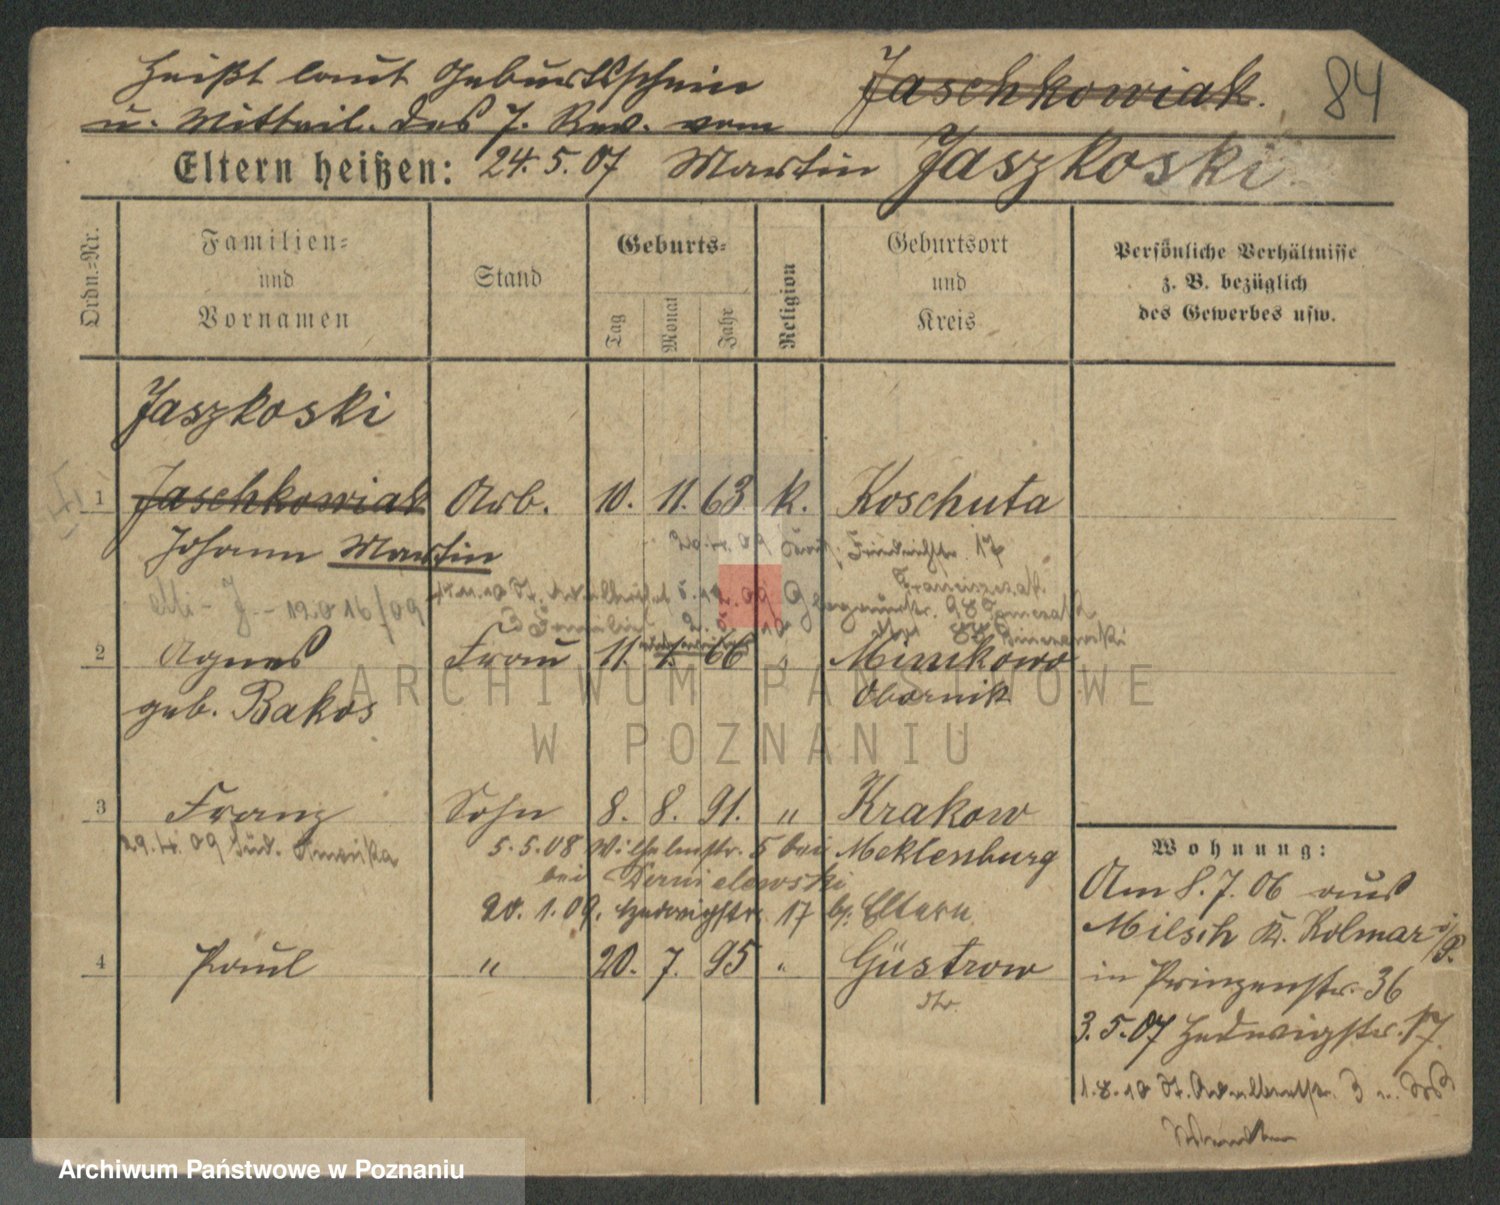 Heißt laut Geburtsschein Jaschkowiak. 84
u. Mitteil. des 7. Rev. vom
Eltern heißen: 24.5.07 Martin Jaszkoski
Ordn.=Nr.
Familien=
und
Vornamen
Stand
Geburts=
Tag
Monat
Jahr
Religion
Geburtsort
und
Kreis
Persönliche Verhältnisse
z. B. bezüglich
des Gewerbes usw.
Jaszkoski
1 Jaschkowiak Arb. 10. 11. 63 k. Koschuta
Johann Martin
09 Friedrichstr. 17
16/09
Franciszak
2 Agnes Frau 11. 1. 66 " Minikowo
geb. Bakos Obornik
3 Franz Sohn 8. 8. 91. " Krakow
29.4.09 Süd. Amerika 5.5.08 Wilhelmstr. 5 bei Mecklenburg
bei
20.1.09. Hedwigstr. 17 bei Eltern
4 Paul " 20. 7. 95 " Güstrow
dto.
Wohnung:
Am 8.7.06 aus
Milsch Kr. Kolmar i/P.
in Prinzenstr. 36
3.5.07 Hedwigstr. 17.
1.8.10 St. Adalbertstr. 3
ARCHIWUM PAŃSTWOWE
W POZNANIU
Archiwum Państwowe w Poznaniu